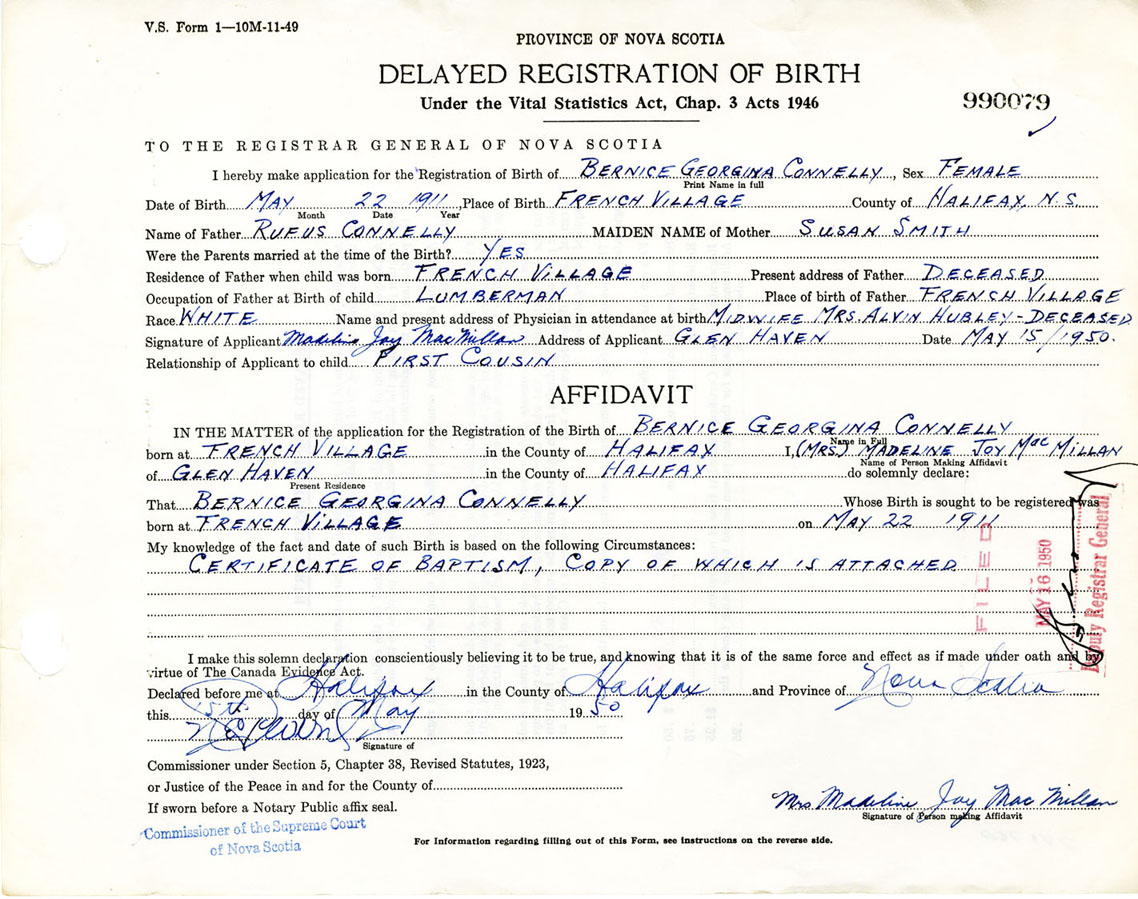 V.S. Form 1—10M-11-49
PROVINCE OF NOVA SCOTIA
DELAYED REGISTRATION OF BIRTH
Under the Vital Statistics Act, Chap. 3 Acts 1946
990079
TO THE REGISTRAR GENERAL OF NOVA SCOTIA
I hereby make application for the Registration of Birth of BERNICE GEORGINA CONNELLY, Sex FEMALE
Print Name in full
Date of Birth MAY 22 1911, Place of Birth FRENCH VILLAGE County of HALIFAX, N.S.
Month Date Year
Name of Father RUFUS CONNELLY MAIDEN NAME of Mother SUSAN SMITH
Were the Parents married at the time of the Birth? YES
Residence of Father when child was born FRENCH VILLAGE Present address of Father DECEASED
Occupation of Father at Birth of child LUMBERMAN Place of birth of Father FRENCH VILLAGE
Race WHITE Name and present address of Physician in attendance at birth MIDWIFE MRS. ALVIN HUBLEY - DECEASED
Signature of Applicant Madeline Joy MacMillan Address of Applicant GLEN HAVEN Date MAY 15/1950.
Relationship of Applicant to child FIRST COUSIN
AFFIDAVIT
IN THE MATTER of the application for the Registration of the Birth of BERNICE GEORGINA CONNELLY
Name in Full
born at FRENCH VILLAGE in the County of HALIFAX I, (MRS.) MADELINE JOY MacMILLAN
Name of Person Making Affidavit
of GLEN HAVEN in the County of HALIFAX do solemnly declare:
Present Residence
That BERNICE GEORGINA CONNELLY Whose Birth is sought to be registered was
born at FRENCH VILLAGE on MAY 22 1911
My knowledge of the fact and date of such Birth is based on the following Circumstances:
CERTIFICATE OF BAPTISM, COPY OF WHICH IS ATTACHED
FILED
MAY 16 1950
Deputy Registrar General
I make this solemn declaration conscientiously believing it to be true, and knowing that it is of the same force and effect as if made under oath and by
virtue of The Canada Evidence Act.
Declared before me at Halifax in the County of Halifax and Province of Nova Scotia
this 15th day of May 1950
Signature of
Commissioner under Section 5, Chapter 38, Revised Statutes, 1923,
or Justice of the Peace in and for the County of
If sworn before a Notary Public affix seal.
Commissioner of the Supreme Court
of Nova Scotia
Mrs Madeline Joy MacMillan
Signature of Person making Affidavit
For Information regarding filling out of this Form, see instructions on the reverse side.